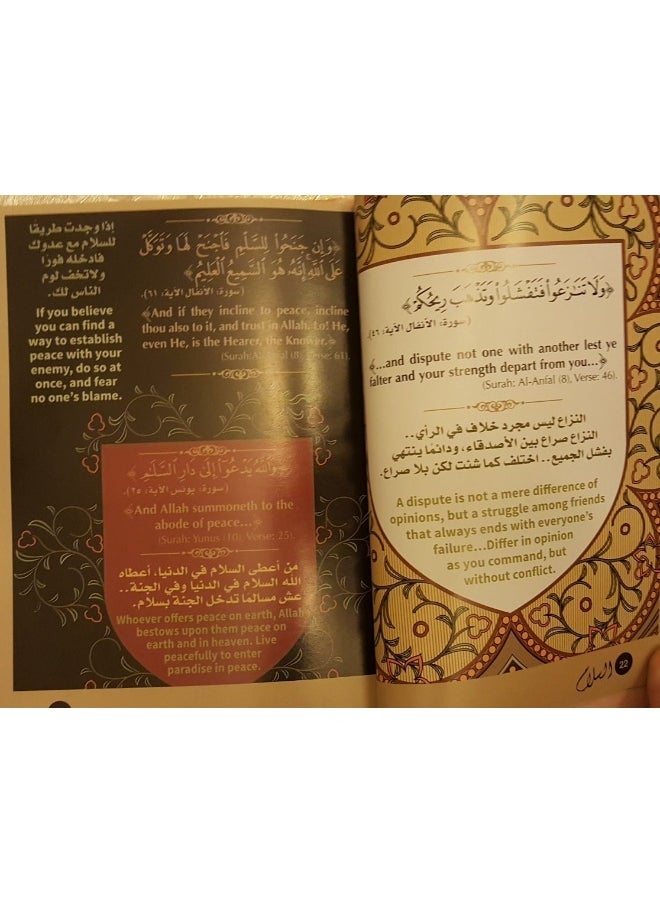 إذا وجدت طريقًا
للسلام مع عدوك
فادخله فورًا
ولا تخف لوم
الناس لك.
If you believe
you can find a
way to establish
peace with your
enemy, do so at
once, and fear
no one's blame.
﴿وَإِن جَنَحُوا۟ لِلسَّلْمِ فَٱجْنَحْ لَهَا وَتَوَكَّلْ
عَلَى ٱللَّهِ إِنَّهُۥ هُوَ ٱلسَّمِيعُ ٱلْعَلِيمُ﴾
(سورة: الأنفال الآية: ٦١).
﴾And if they incline to peace, incline
thou also to it, and trust in Allah. Lo! He,
even He, is the Hearer, the Knower.﴿
(Surah: Al-Anfal (8), Verse: 61).
﴿وَٱللَّهُ يَدْعُوٓا۟ إِلَىٰ دَارِ ٱلسَّلَٰمِ﴾
(سورة: يونس الآية: ٢٥).
﴾And Allah summoneth to the
abode of peace...﴿
(Surah: Yunus (10), Verse: 25).
من أعطى السلام في الدنيا.. أعطاه
الله السلام في الدنيا وفي الجنة..
عش مسالمًا تدخل الجنة بسلام.
Whoever offers peace on earth, Allah
bestows upon them peace on
earth and in heaven. Live
peacefully to enter
paradise in peace.
﴿وَلَا تَنَٰزَعُوا۟ فَتَفْشَلُوا۟ وَتَذْهَبَ رِيحُكُمْ﴾
(سورة: الأنفال الآية: ٤٦).
﴾...and dispute not one with another lest ye
falter and your strength depart from you...﴿
(Surah: Al-Anfal (8), Verse: 46).
النزاع ليس مجرد خلاف في الرأي..
النزاع صراع بين الأصدقاء، ودائمًا ينتهي
بفشل الجميع.. اختلف كما شئت لكن بلا صراع.
A dispute is not a mere difference of
opinions, but a struggle among friends
that always ends with everyone's
failure...Differ in opinion
as you command, but
without conflict.
السلام 22